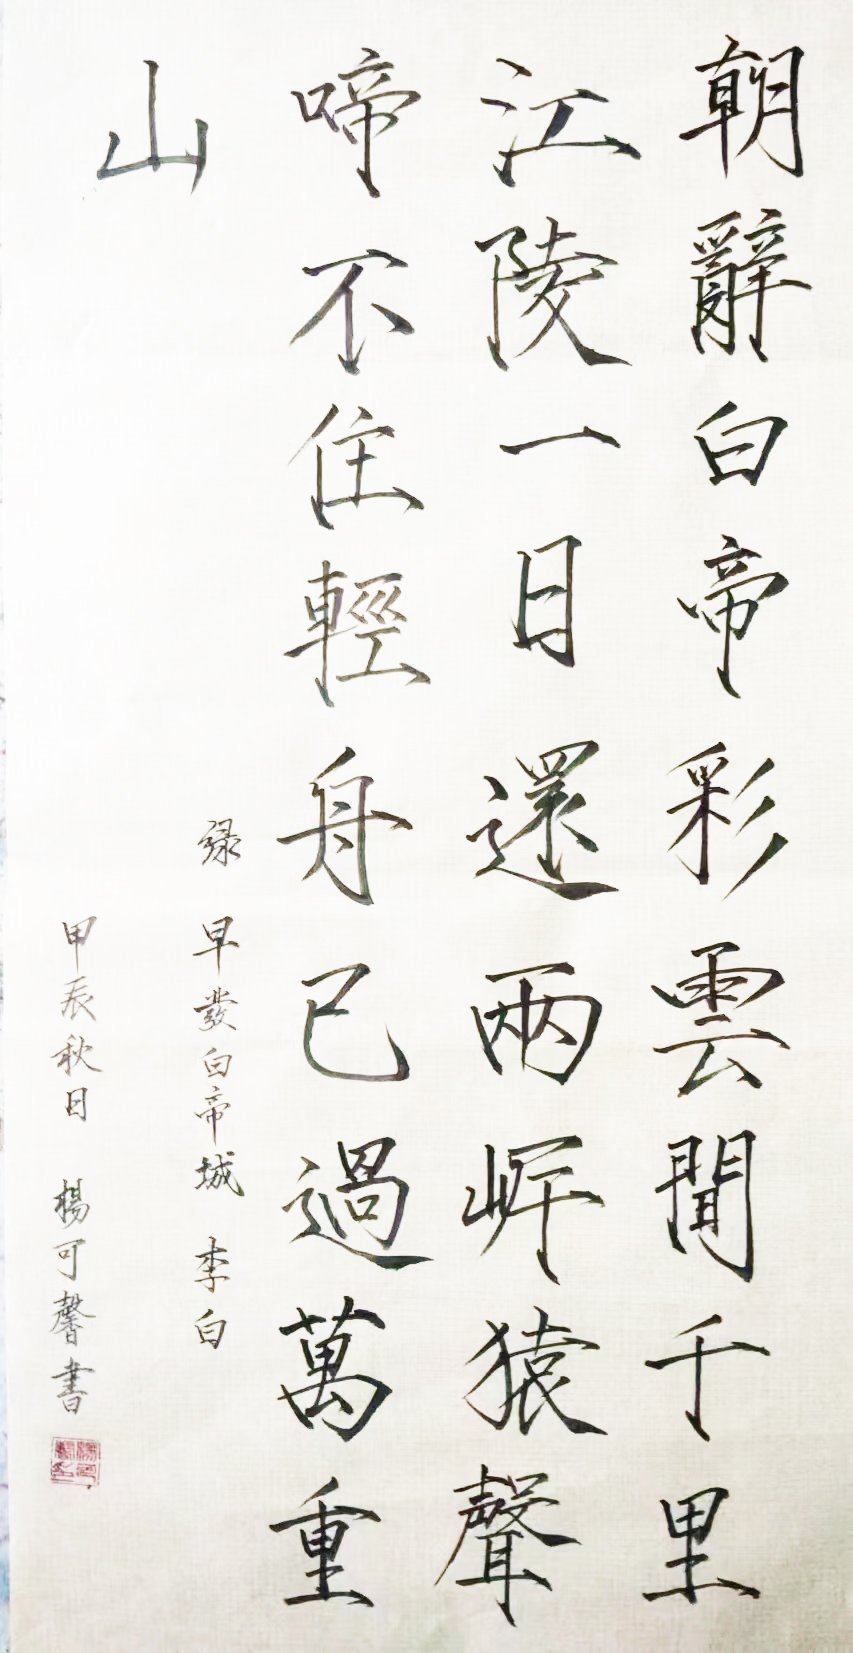 朝辭白帝彩雲間千里
江陵一日還兩岸猿聲
啼不住輕舟已過萬重
山
録 早發白帝城 李白
甲辰秋日 楊可馨書